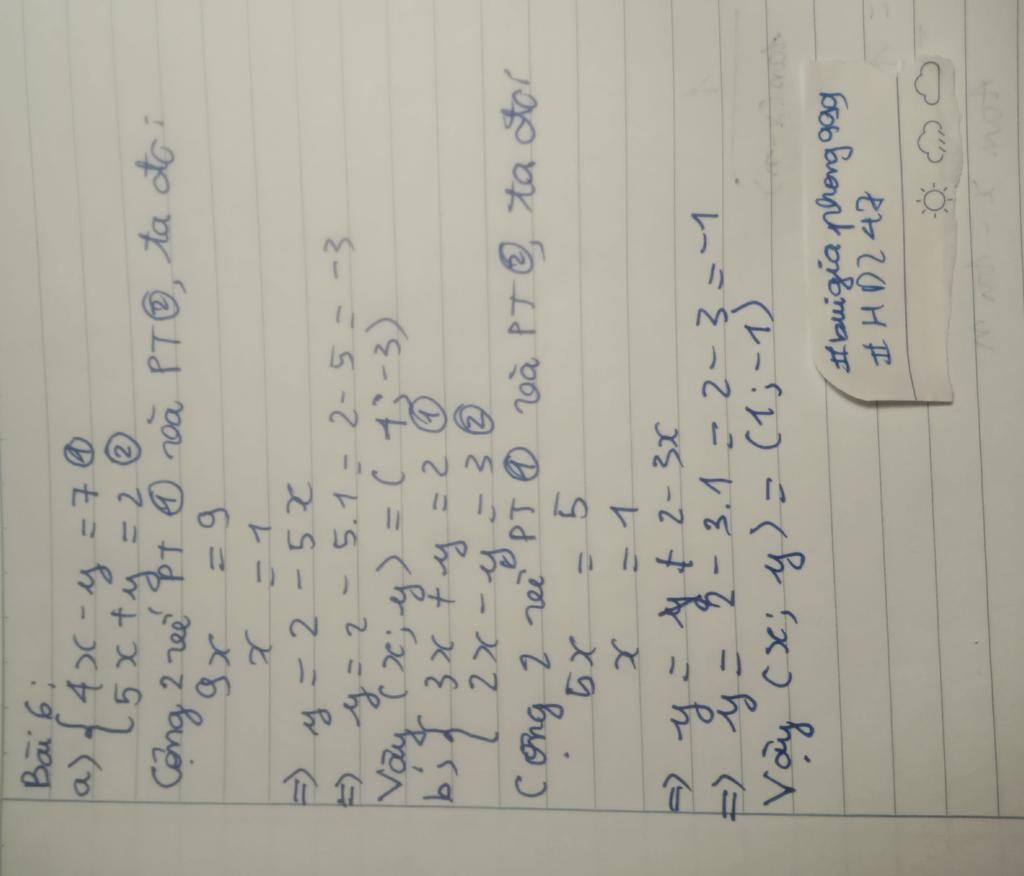 Bài 6:
a) { 4x - y = 7 ①
5x + y = 2 ②
Cộng 2 vế PT ① và PT ②, ta đc:
9x = 9
x = 1
=> y = 2 - 5x
=> y = 2 - 5.1 = 2 - 5 = -3
Vậy (x; y) = (1; -3)
b) { 3x + y = 2 ①
2x - y = 3 ②
Cộng 2 vế PT ① và PT ②, ta đc:
5x = 5
x = 1
=> y = 2 - 3x
=> y = 2 - 3.1 = 2 - 3 = -1
Vậy (x; y) = (1; -1)
#HD247